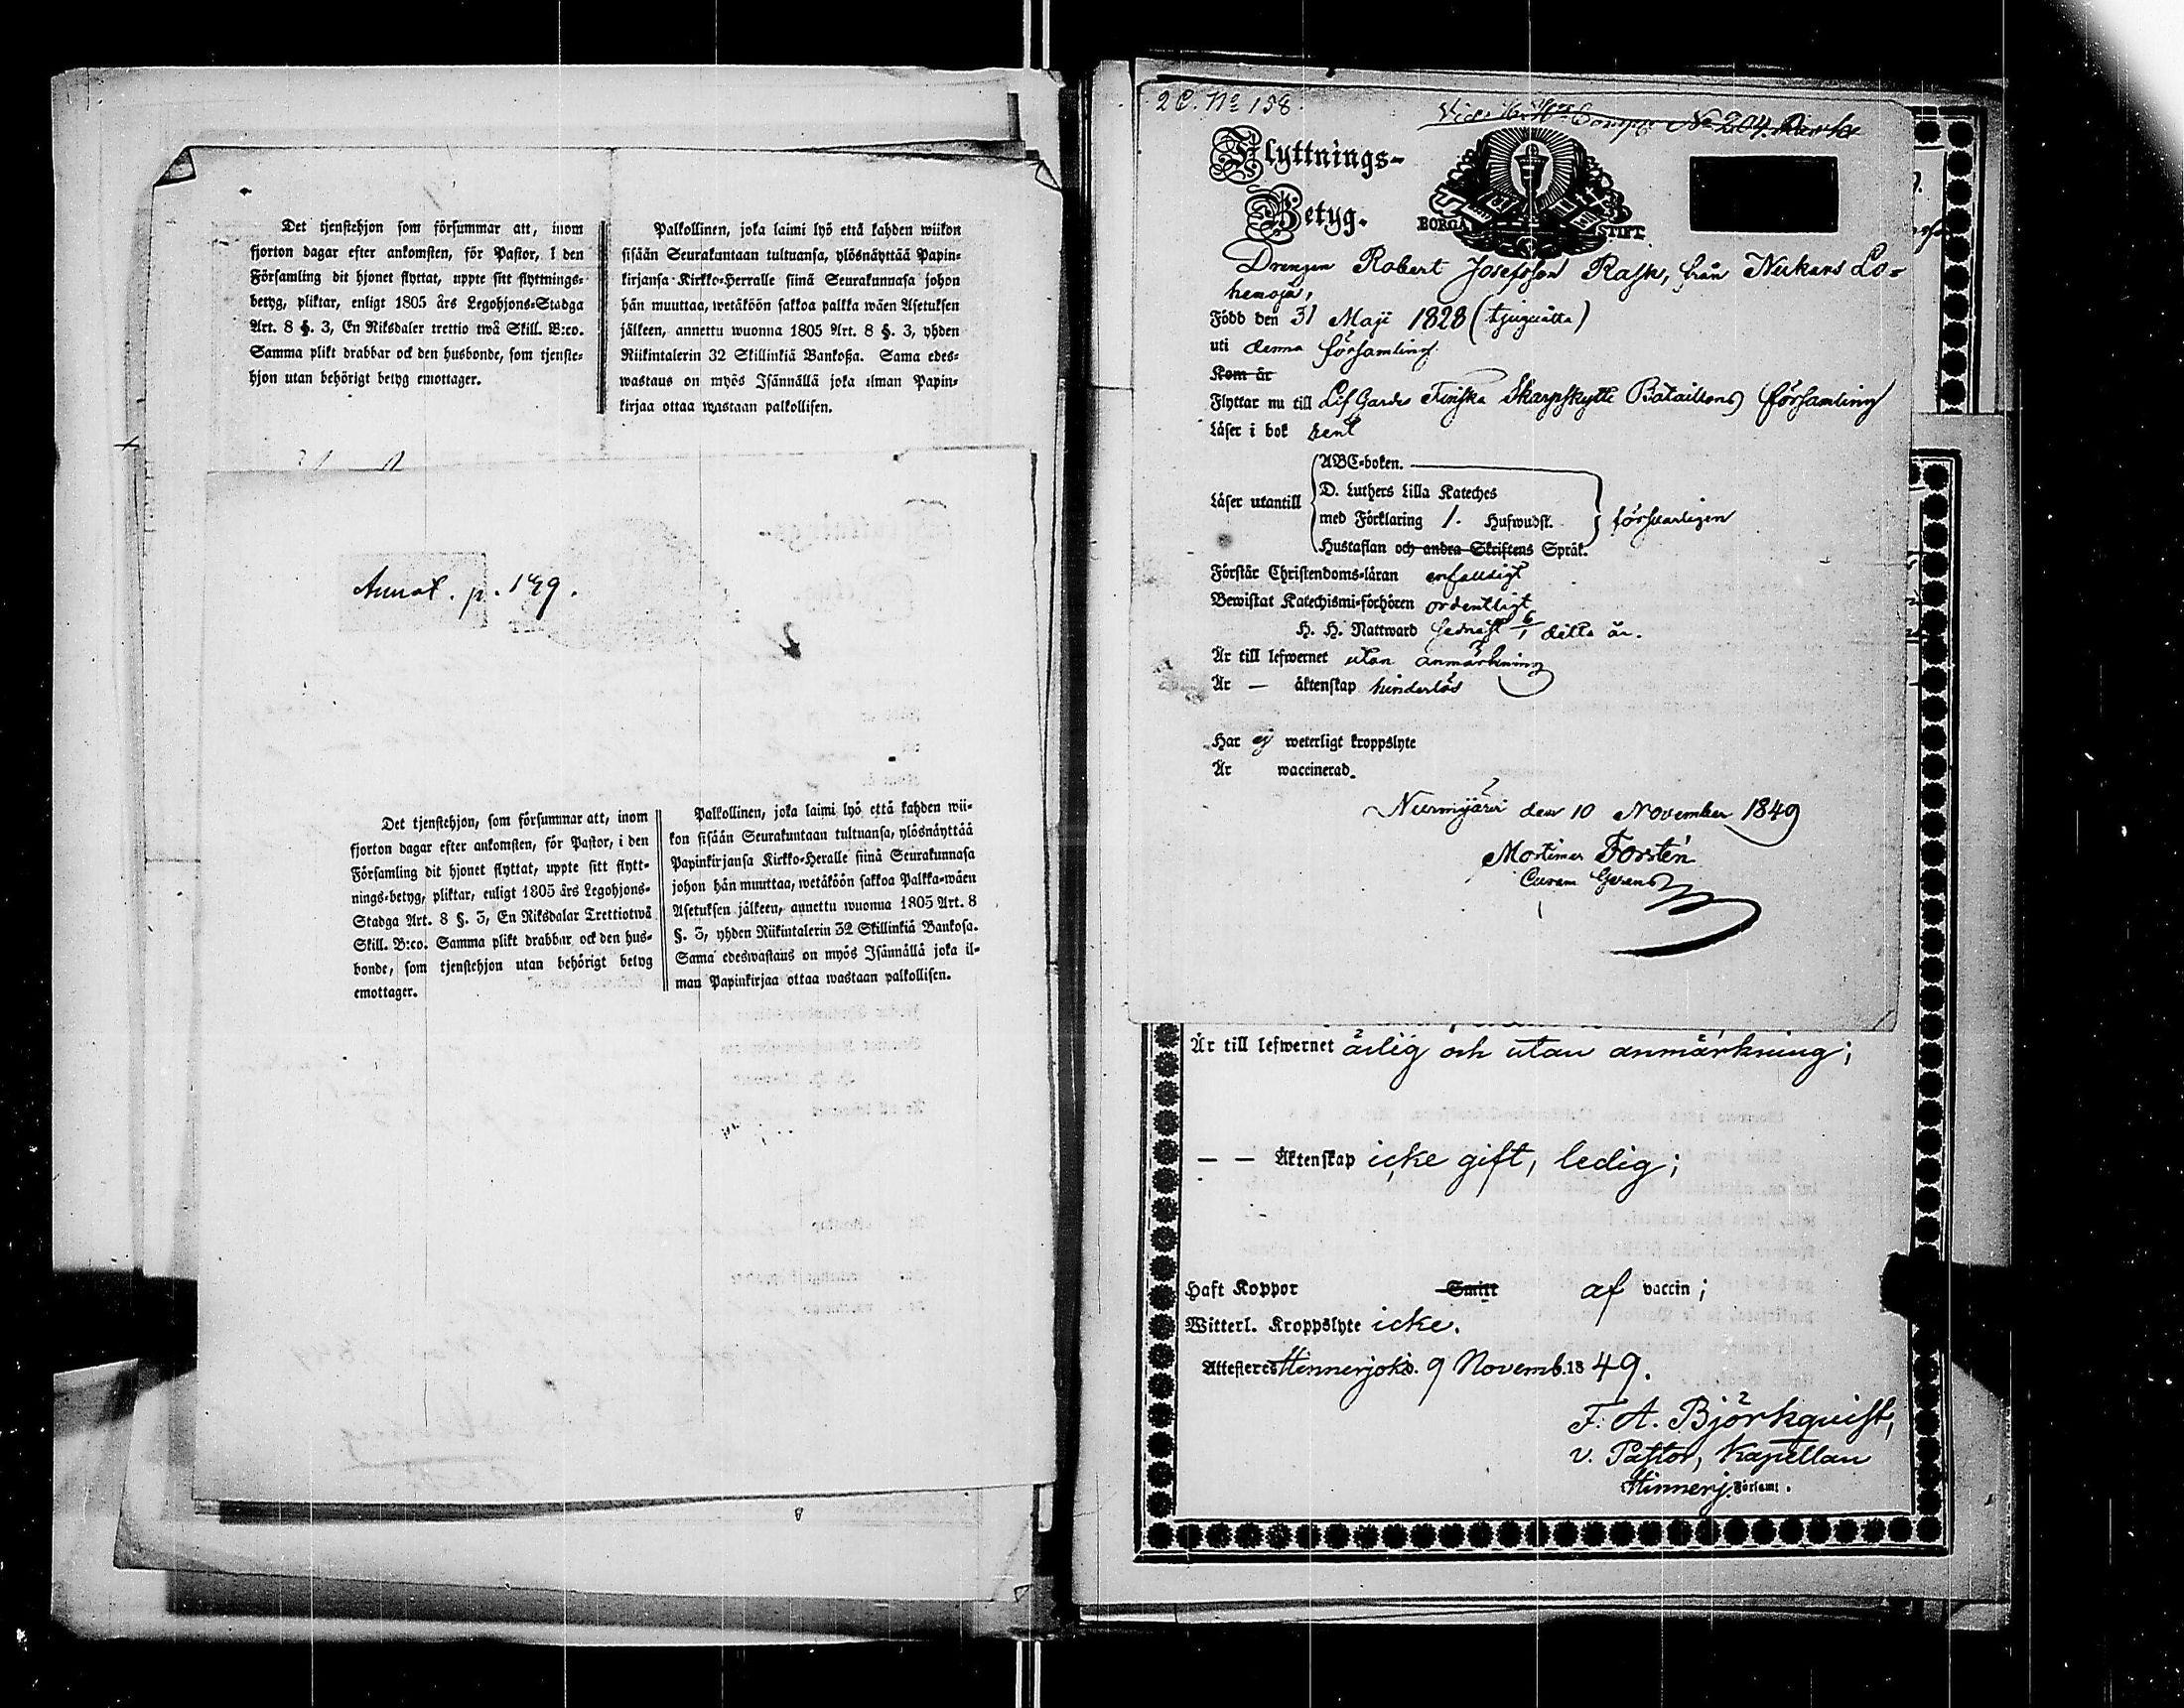 Det tjenstehjon som försummar att, inom
fjorton dagar efter ankomsten, för Pastor, I den
Församling dit hjonet flyttat, uppte sitt flyttnings-
betyg, pliktar, enligt 1805 års Legohjons-Stadga
Art. 8 §. 3, En Riksdaler trettio twå Skill. B:co.
Samma plikt drabbar ock den husbonde, som tjenste-
hjon utan behörigt betyg emottager.
Palkollinen, joka laimi lyö että kahden wiikon
sisään Seurakuntaan tultuansa, ylösnäyttää Papin-
kirjansa Kirkko-Herralle siinä Seurakunnasa johon
hän muuttaa, wetäköön sakkoa palkka wäen Asetuksen
jälkeen, annettu wuonna 1805 Art. 8 §. 3, yhden
Riikintalerin 32 Skillinkiä Bankoßa. Sama edes-
wastaus on myös Isännällä joka ilman Papin-
kirjaa ottaa wastaan palkollisen.
Annot. p. 149.
Det tjenstehjon, som försummar att, inom
fjorton dagar efter ankomsten, för Pastor, i den
Församling dit hjonet flyttat, uppte sitt flytt-
nings-betyg, pliktar, enligt 1805 års Legohjons-
Stadga Art. 8 §. 3, En Riksdalar Trettiotwå
Skill. B:co. Samma plikt drabbar ock den hus-
bonde, som tjenstehjon utan behörigt betyg
emottager.
Palkollinen, joka laimi lyö että kahden wii-
kon sisään Seurakuntaan tultuansa, ylösnäyttää
Papinkirjansa Kirkko-Heralle siinä Seurakunnasa
johon hän muuttaa, wetäköön sakkoa Palkka-wäen
Asetuksen jälkeen, annettu wuonna 1805 Art. 8
§. 3, yhden Riikintalerin 32 Skillinkiä Bankosa.
Sama edeswastaus on myös Isännällä joka il-
man Papinkirjaa ottaa wastaan palkollisen.
2 C. No 158
No 204
Flyttnings-
Betyg.
BORGÅ STIFT.
Drengen Robert Josefsson Rask, från Nukars Lo-
henoja,
Född den 31 Maji 1828 (tjuguåtta)
uti denna församling
Kom år
Flyttar nu till Lif Gardes Finska Skarpskytte Bataillons församling
Läser i bok rent
Läser utantill
ABC-boken.
D. Luthers Lilla Kateches
med Förklaring 1. Hufwudst.
Hustaflan och andra Skriftens Språk.
försvarligen
Förstår Christendoms-läran enfaldigt
Bewistat Katechismi-förhören ordentligt
H. H. Nattward sednast 6/1 detta år.
Är till lefwernet utan anmärkning
Är — äktenskap hinderlös
Har ej weterligt kroppslyte
Är waccinerad.
Nurmijärvi den 10 November 1849
Mortimer Forstén
Curam Gerens
Är till lefwernet ärlig och utan anmärkning;
— — Äktenskap icke gift, ledig;
Haft Koppor Smitt af vaccin;
Witterl. Kroppslyte icke.
Attesteres Hinnerjoki d. 9 Novemb. 1849.
F. A. Björkquist,
v. Pastor, Kapellan
Hinnerj. Församl.